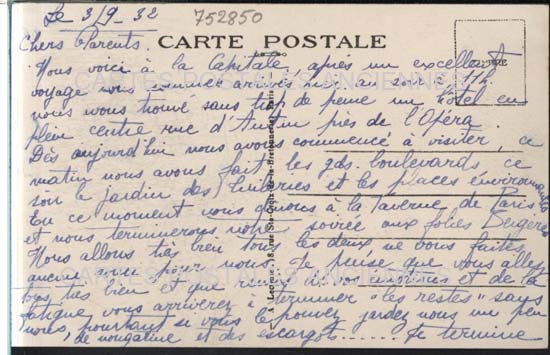 Le 3/9/32
752850
Chers Parents.
CARTE POSTALE
TIMBRE
Nous voici à la Capitale, après un excellent
voyage nous sommes arrivés hier au soir à 11h.
nous avons trouvé sans trop de peine un hôtel en
plein centre rue d'Antin près de l'Opéra.
Dès aujourd'hui nous avons commencé à visiter, ce
matin nous avons fait les gds. boulevards ce
soir le jardin des Tuileries et les places environnantes
En ce moment nous dînons à la Taverne de Paris
et nous terminerons notre soirée aux folies Bergère
Nous allons très bien tous les deux ne vous faites
aucun souci pour nous. Je pense que vous allez
tous très bien et que vous et de la
fatigue vous arriverez à terminer "les restes" sans
nous, pourtant si vous le pouvez gardez nous un peu
de nougatine et des escargots...... Je termine
A Leconte, 38, rue Ste-Croix-de-la-Bretonnerie, Paris
CARTES POSTALES ANCIENNES
CARTES POSTALES ANCIENNES